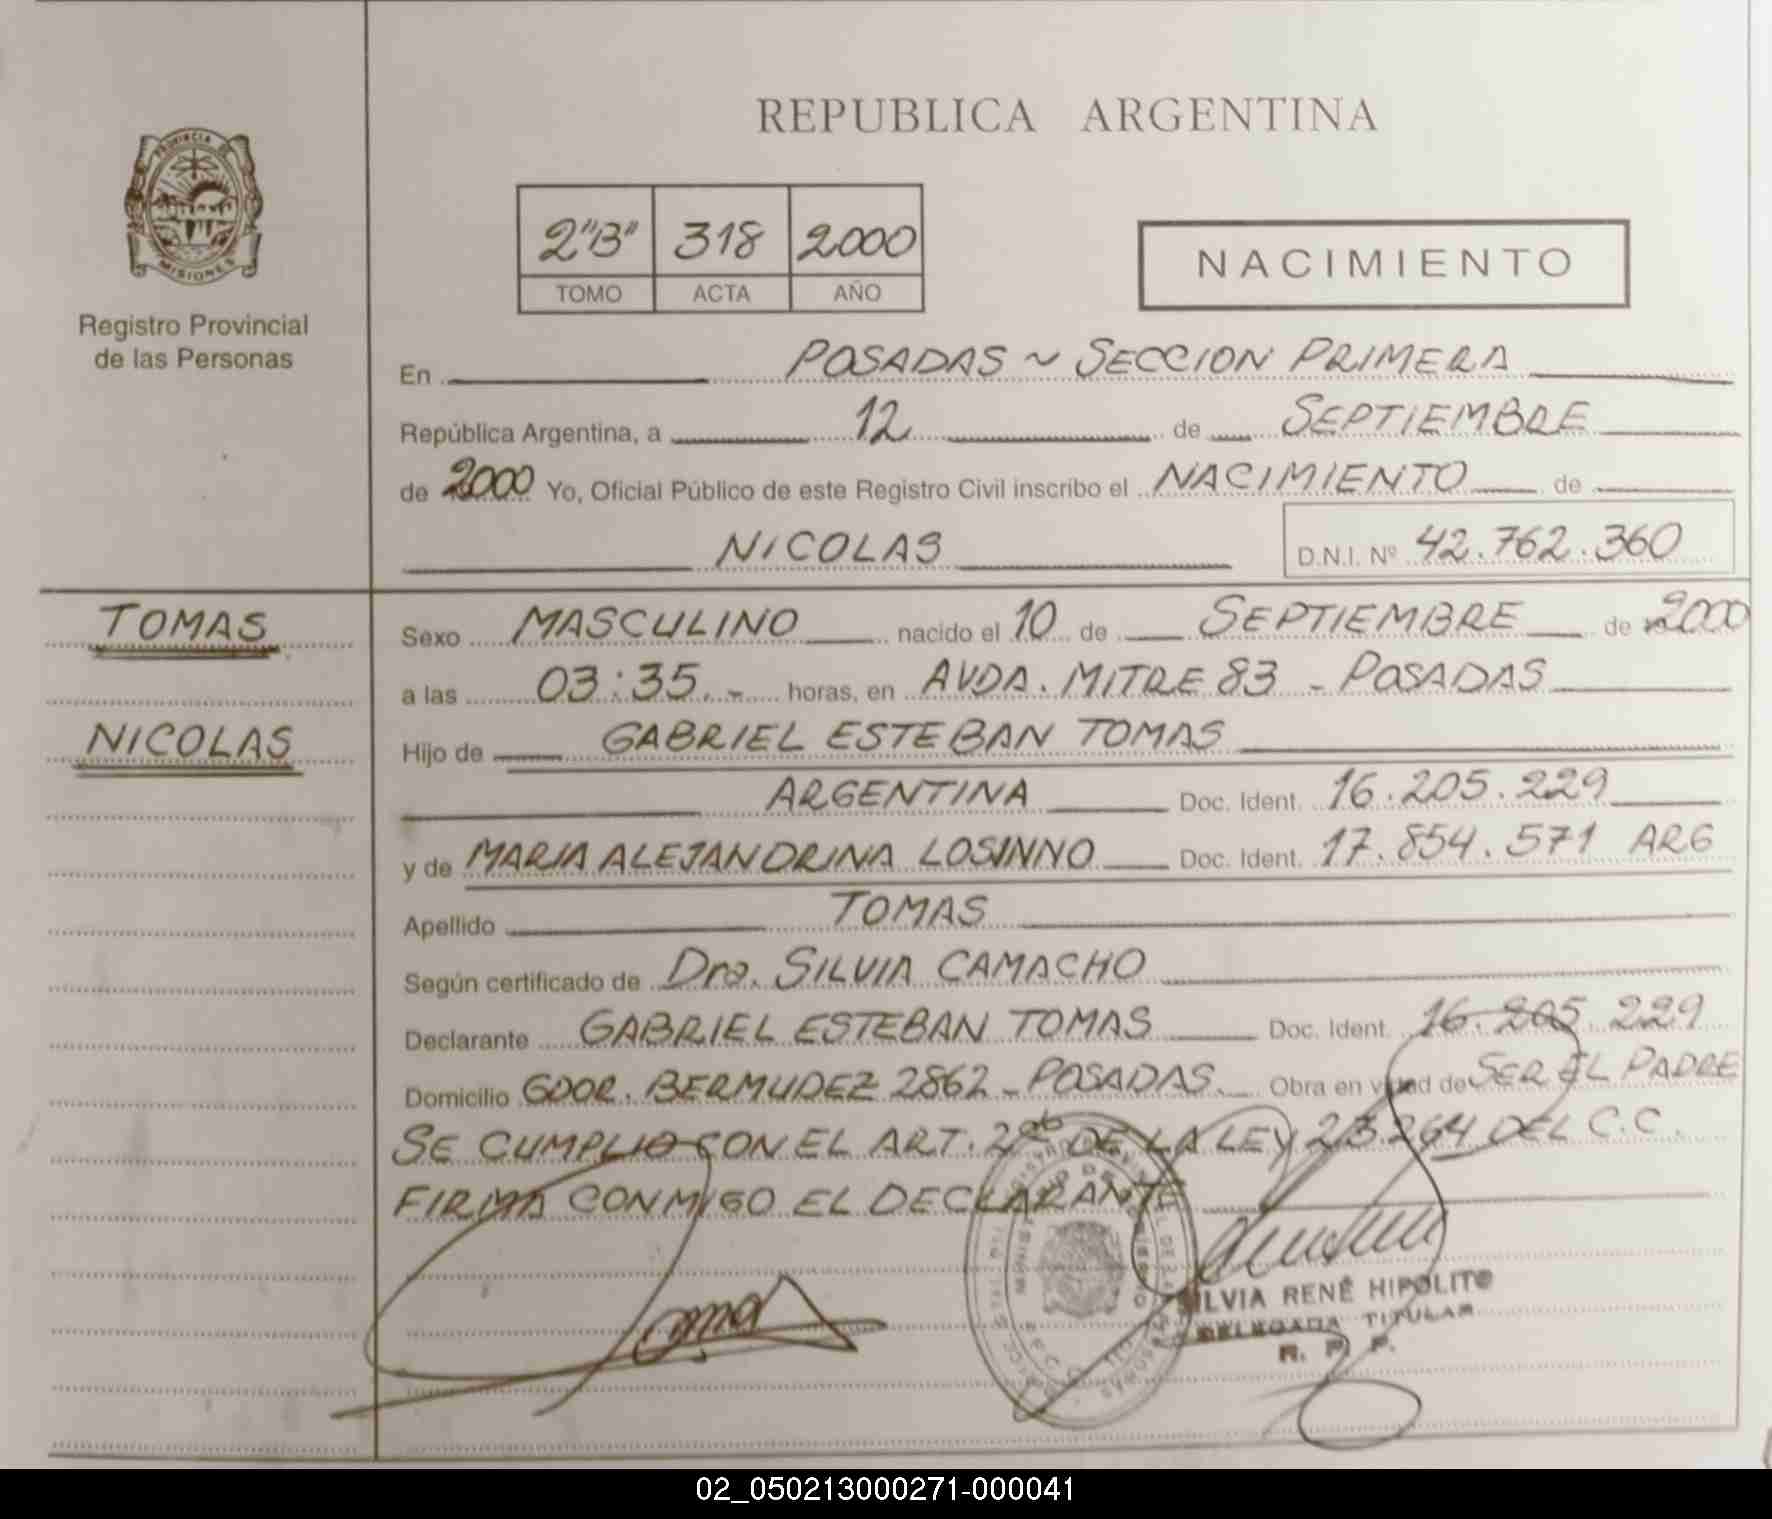 REPUBLICA ARGENTINA
PROVINCIA DE
MISIONES
Registro Provincial
de las Personas
2"B" 318 2000
TOMO ACTA AÑO
NACIMIENTO
En POSADAS ~ SECCION PRIMERA
República Argentina, a 12 de SEPTIEMBRE
de 2000 Yo, Oficial Público de este Registro Civil inscribo el NACIMIENTO de
NICOLAS D.N.I. Nº 42.762.360
TOMAS
NICOLAS
Sexo MASCULINO nacido el 10 de SEPTIEMBRE de 2000
a las 03:35.- horas, en AVDA. MITRE 83 - POSADAS
Hijo de GABRIEL ESTEBAN TOMAS
ARGENTINA Doc. Ident. 16.205.229
y de MARIA ALEJANDRINA LOSINNO Doc. Ident. 17.854.571 ARG
Apellido TOMAS
Según certificado de Dra. SILVIA CAMACHO
Declarante GABRIEL ESTEBAN TOMAS Doc. Ident. 16.205.229
Domicilio GDOR. BERMUDEZ 2862 - POSADAS. Obra en virtud de SER EL PADRE
SE CUMPLIO CON EL ART. 2do DE LA LEY 23.264 DEL C.C.
FIRMA CONMIGO EL DECLARANTE
SILVIA RENÉ HIPOLITO
DELEGADA TITULAR
R. P. P.
02_050213000271-000041